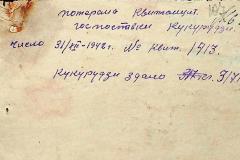 потеряла Квитанция
госпоставки Кукурузи.
число 31/XII-1948 г. № Квит. 1413.
Кукурудзи здано